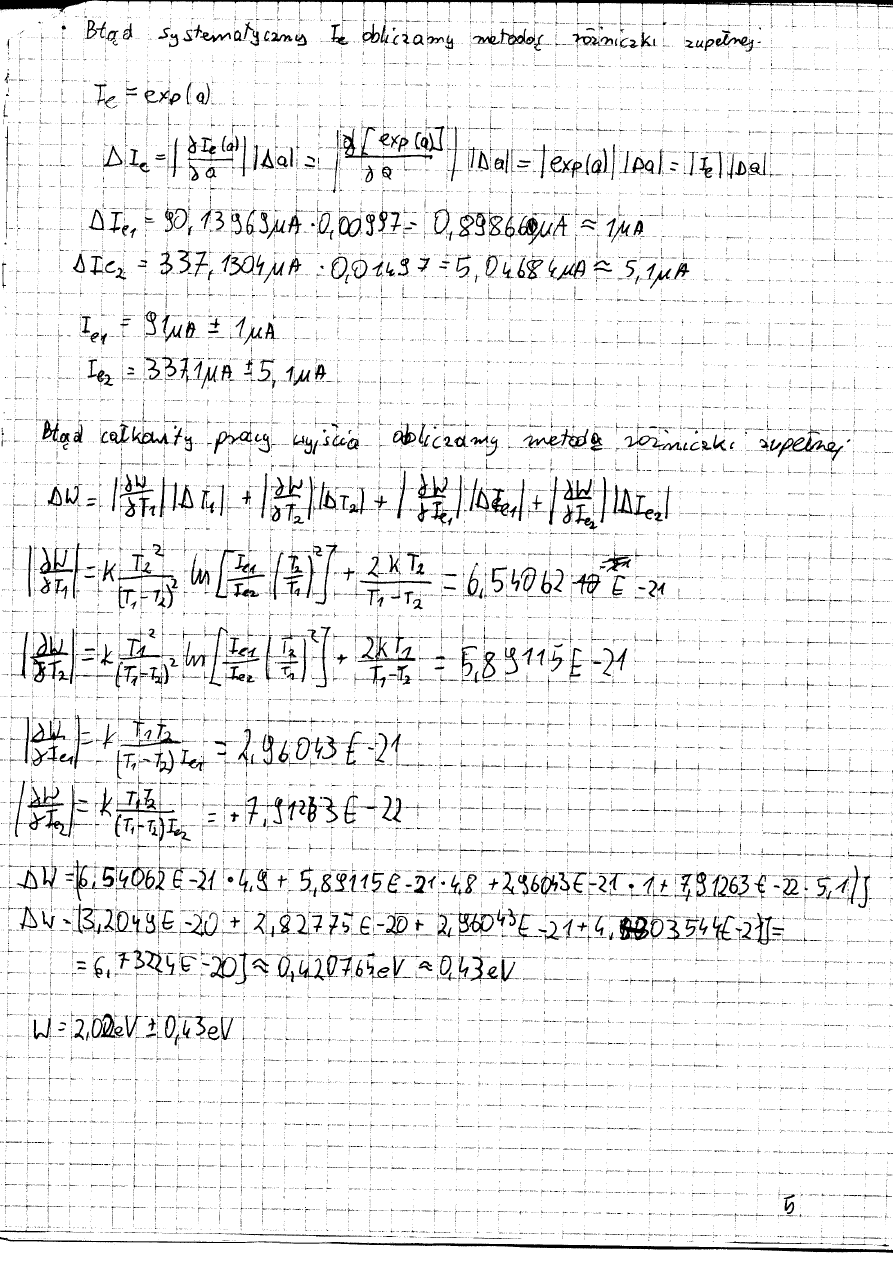 • Błąd systematyczny Ie obliczamy metodą różniczki zupełnej.
Ie = exp(a)
ΔIe = |∂Ie(a)/∂a| |Δa| = |∂[exp(a)]/∂a| |Δa| = |exp(a)| |Δa| = |Ie| |Δa|
ΔIe1 = 90,13969μA · 0,00997 = 0,89866μA ≈ 1μA
ΔIe2 = 337,1304μA · 0,01497 = 5,04684μA ≈ 5,1μA
Ie1 = 91μA ± 1μA
Ie2 = 337,1μA ± 5,1μA
Błąd całkowity pracy wyjścia obliczamy metodą różniczki zupełnej
ΔW = |∂W/∂T1| |ΔT1| + |∂W/∂T2| |ΔT2| + |∂W/∂Ie1| |ΔIe1| + |∂W/∂Ie2| |ΔIe2|
|∂W/∂T1| = k T2²/(T1-T2)² ln[Ie1/Ie2 (T2/T1)²] + 2kT2/(T1-T2) = 6,54062 E-21
|∂W/∂T2| = k T1²/(T1-T2)² ln[Ie1/Ie2 (T2/T1)²] + 2kT1/(T1-T2) = 5,89115E-21
|∂W/∂Ie1| = k T1T2/((T1-T2)Ie1) = 2,96043E-21
|∂W/∂Ie2| = k T1T2/((T1-T2)Ie2) = +7,91263E-22
ΔW = (6,54062E-21 · 4,9 + 5,89115E-21 · 4,8 + 2,96043E-21 · 1 + 7,91263E-22 · 5,1)J
ΔW = (3,2049E-20 + 2,82775E-20 + 2,96043E-21 + 4,03544E-21)J =
= 6,73224E-20J ≈ 0,420765eV ≈ 0,43eV
W = 2,02eV ± 0,43eV
5